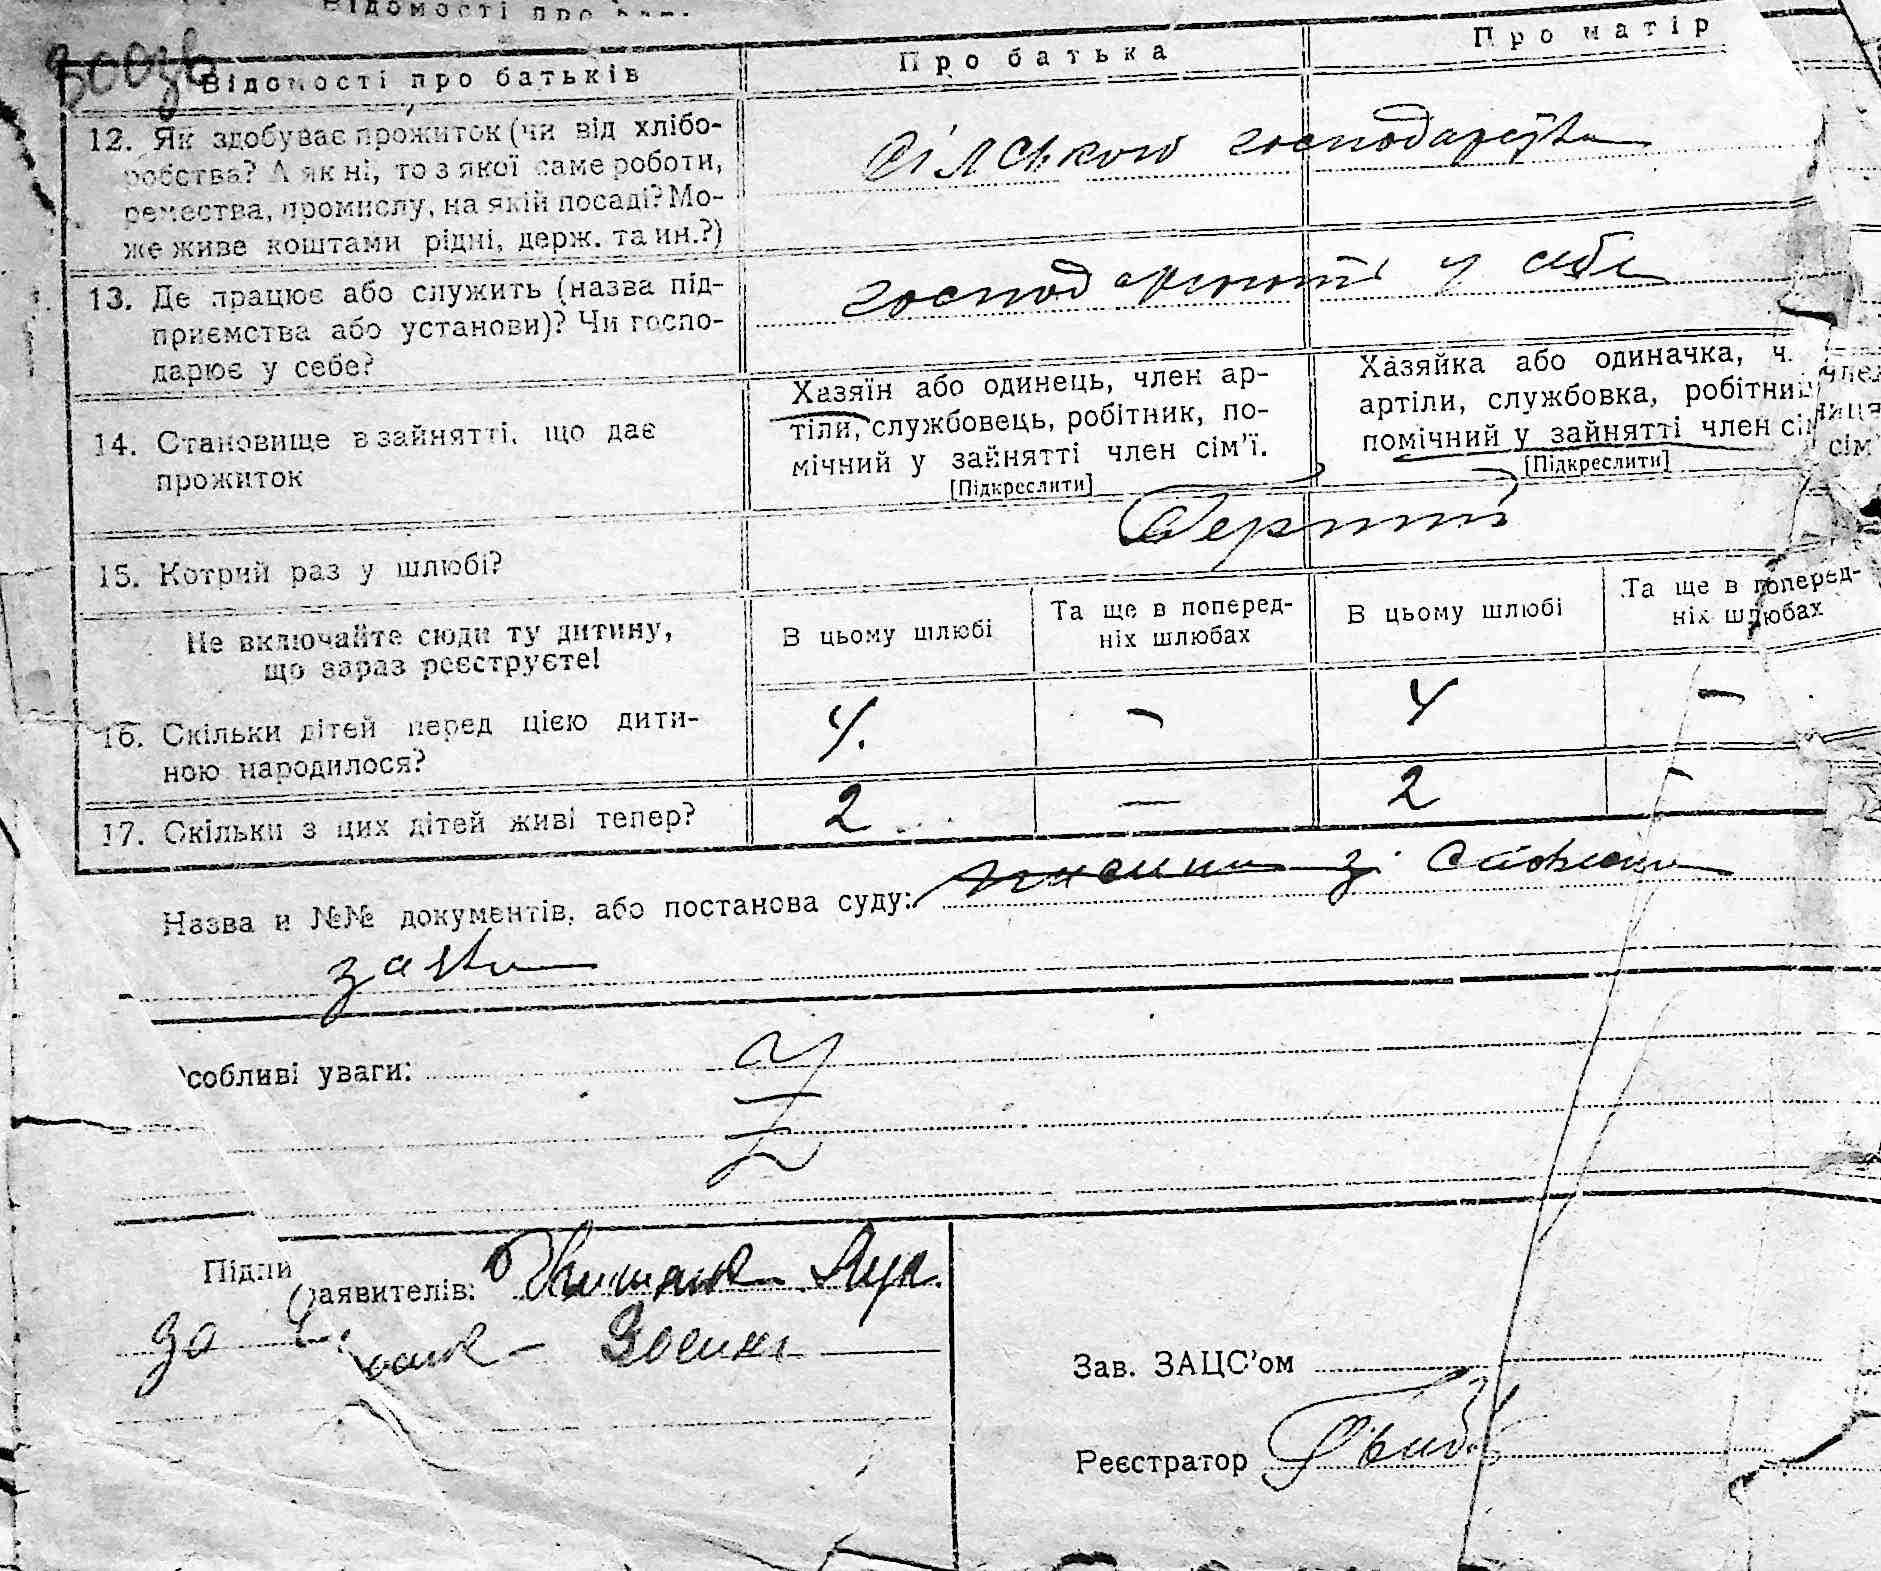 Відомості про батьків
Про батька
Про матір
12. Як здобуває прожиток (чи від хлібо-
робства? А як ні, то з якої саме роботи,
ремества, промислу, на якій посаді? Мо-
же живе коштами рідні, держ. та ин.?)
сілського господарства
13. Де працює або служить (назва під-
приємства або установи)? Чи госпо-
дарює у себе?
господарюють у себе
14. Становище в зайнятті, що дає
прожиток
Хазяїн або одинець, член ар-
тіли, службовець, робітник, по-
мічний у зайнятті член сім'ї.
[Підкреслити]
Хазяйка або одиначка, ч.
артіли, службовка, робітниц
помічний у зайнятті член сім
[Підкреслити]
15. Котрий раз у шлюбі?
Перший
Не включайте сюди ту дитину,
що зараз реєструєте!
В цьому шлюбі
Та ще в поперед-
ніх шлюбах
В цьому шлюбі
Та ще в поперед-
ніх шлюбах
16. Скільки дітей перед цією дити-
ною народилося?
4. - 4 -
17. Скільки з цих дітей живі тепер?
2 - 2 -
Назва и №№ документів, або постанова суду:
зі
заяви
собливі уваги:
Підпи
заявителів:
за
Зав. ЗАЦС'ом
Реєстратор